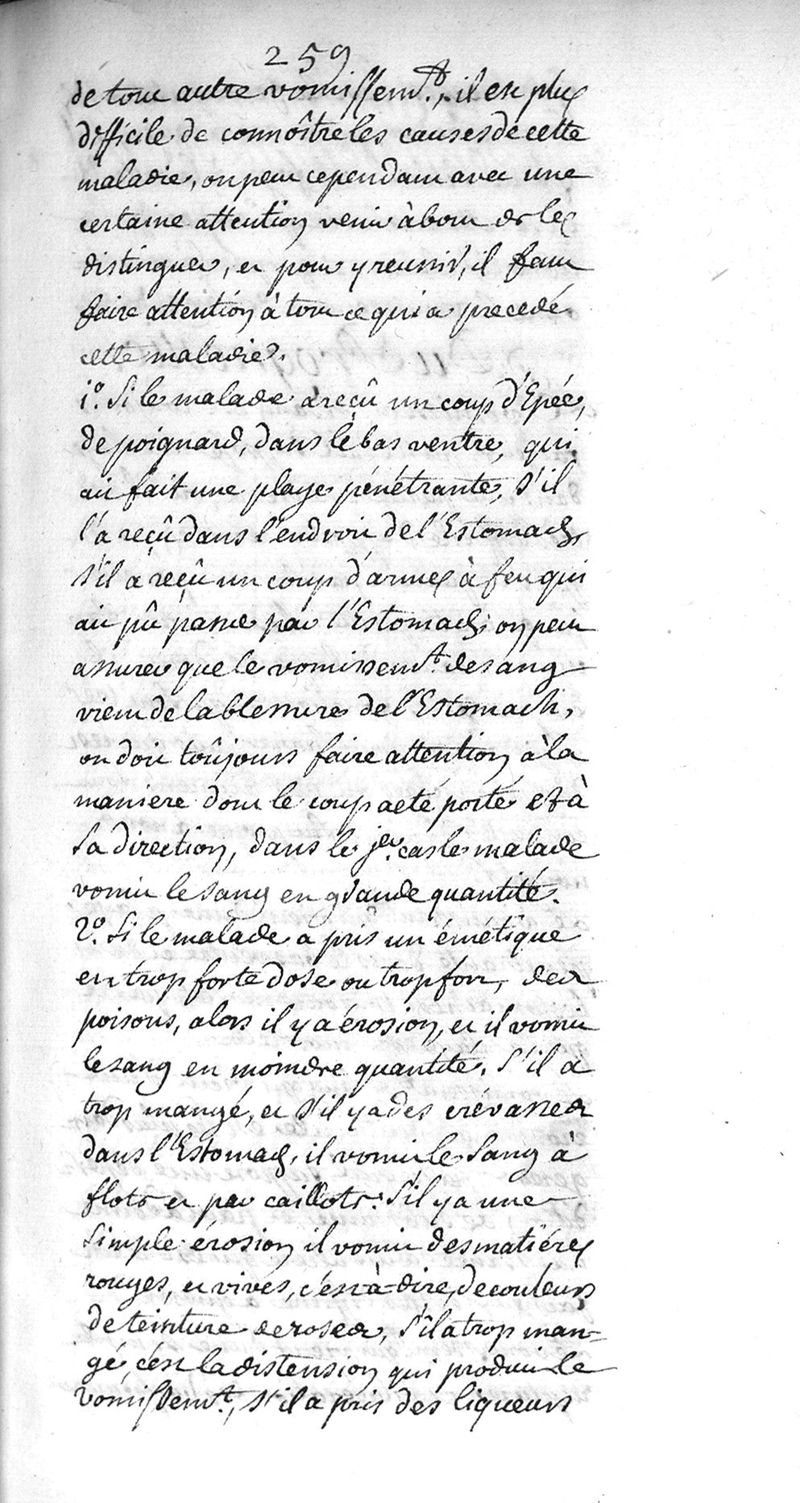 259
de tout autre vomissem.t, il est plus
difficile de connoître les causes de cette
maladie, on peut cependant avec une
certaine attention venir à bout de les
distinguer, et pour y reussir, il faut
faire attention à tout ce qui a precedé
cette maladie.
1.º Si le malade a reçû un coup d'Epée,
de poignard, dans le bas ventre, qui
ait fait une playe pénétrante, s'il
l'a reçû dans l'endroit de l'Estomach,
s'il a reçû un coup d'armes à feu qui
ait pû passer par l'Estomach, on peut
assurer que le vomissem.t de sang
vient de la blessure de l'Estomach,
on doit toûjours faire attention à la
maniere dont le coup a eté porté et à
sa direction, dans le 1er. cas le malade
vomit le sang en grande quantité.
2.º Si le malade a pris un émétique
en trop forte dose ou trop fort, des
poisons, alors il y a érosion, et il vomit
le sang en moindre quantité. S'il a
trop mangé, et s'il y a des crévasses
dans l'Estomach, il vomit le sang à
flots et par caillots. S'il y a une
simple érosion il vomit des matiéres
rouges, et vives, c'est à-dire, de couleurs
de teinture de roses, s'il a trop man-
gé, c'est la distension qui produit le
vomissem.t, s'il a pris des liqueurs